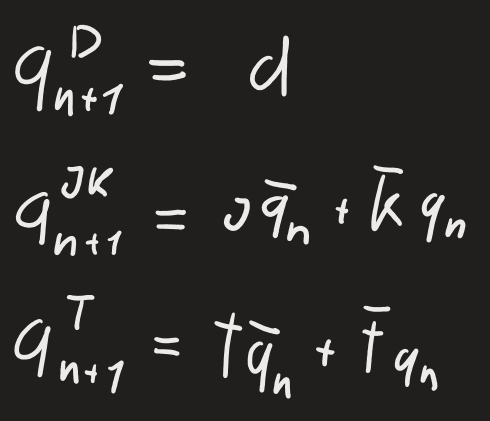 q_{n+1}^{D} = d
q_{n+1}^{JK} = J q̄_n + k̄ q_n
q_{n+1}^{T} = t q̄_n + t̄ q_n